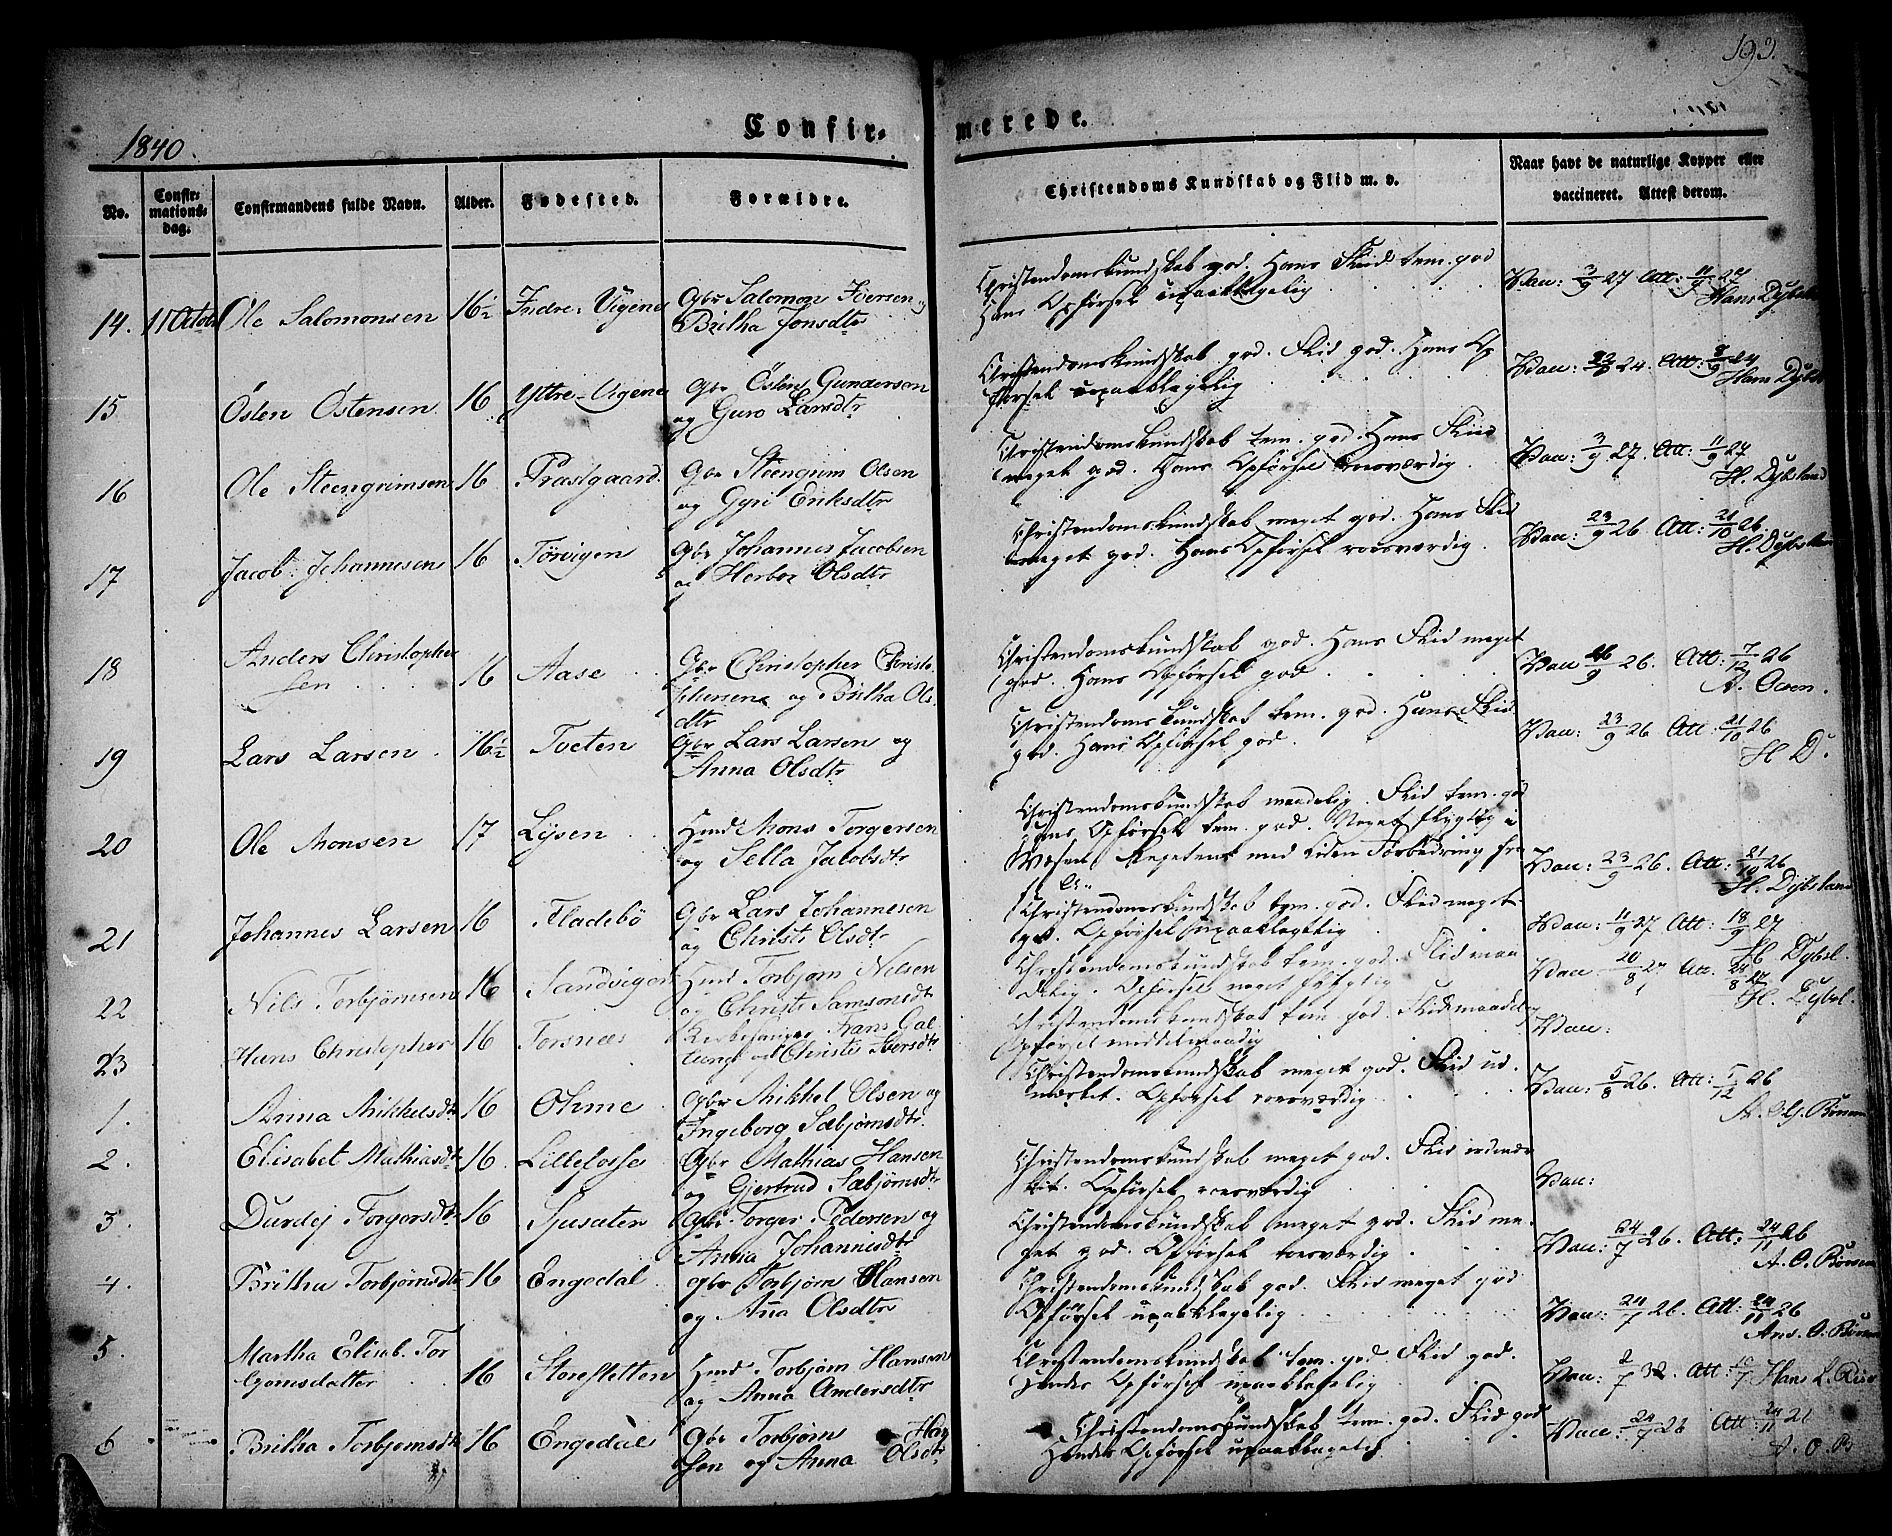 193.
1840.
Confir-
merede.
No.
Confir-
mations-
dag.
Confirmandens fulde Navn.
Alder.
Fødested.
Forældre.
Christendoms Kundskab og Flid m. v.
Naar havt de naturlige Kopper eller
vaccineret. Attest derom.
14. 11 Octob Ole Salomonsen 16½ Indre-Vigene Gbr Salomon Iversen og
Britha Jonsdtr
Christendomskundskab god. Hans Flid tem. god
Hans Opførsel upaaklagelig
Vac: 3/9 27 Att: 11/9 27
Hans Dybsland
15 Østen Østensen 16 Yttre-Vigene Gbr Østen Gundersen
og Guro Larsdtr
Christendomskundskab god. Flid god. Hans Op
førsel upaaklagelig
Hans Dybsl
16 Ole Steengrimsen 16 Præstgaard Gbr Steengrim Olsen
og Gyri Eriksdtr
Christendomskundskab tem. god. Hans Flid
meget god. Hans Opførsel roesværdig
Vac: 3/9 27. Att: 11/9 27
H. Dybsland
17 Jacob Johannesen 16 Tørvigen Gbr Johannes Jacobsen
og Herbor Olsdtr
Christendomskundskab meget god. Hans Flid
meget god. Hans Opførsel roesværdig
Vac: 23/9 26 Att: 21/10 26.
H. Dybsland
18 Anders Christopher
sen 16 Aase Gbr Christopher Christo
phersen og Britha Ols
dtr
Christendomskundskab god. Hans Flid meget
god. Hans Opførsel god
Vac 26/9 26. Att: 7/12 26
A. Olsen.
19 Lars Larsen 16½ Tveten Gbr Lars Larsen og
Anna Olsdtr
Christendomskundskab tem. god. Hans Flid
god. Hans Opførsel god.
Vac: 23/9 26 Att: 21/10 26
H D.
20 Ole Monsen 17 Lysen Hmd Mons Torgersen
og Sella Jacobsdtr
Christendomskundskab maadelig. Flid tem. god
Hans Opførsel tem. god. Noget flygtig i
Væsen med liden Forbedring fra
Vac: 23/9 26. Att: 21/10 26
H. Dybsland
21 Johannes Larsen 16 Fladebö Gbr Lars Johannesen
og Christi Olsdtr
Christendomskundskab tem. god. Flid meget
god. Opførsel upaaklagelig
Vac: 11/9 27 Att: 18/9 27
H. Dybsl.
22 Nils Torbjørnsen 16 Sandvigen Hmd Torbjørn Nilsen
og Christi Samsonsdtr
Christendomskundskab tem. god. Flid maa
delig. Opførsel
Vac: 20/8 27 Att: 28/8 27
H. Dybsl.
23 Hans Christopher 16 Torsnæs Kirkesanger Frans Gal
tung og Christi Iversdtr
Christendomskundskab tem god. Flid maadelig
Opførsel middelmaadig
Vac:
1. Anna Mikkelsdtr 16 Ohme Gbr Mikkel Olsen og
Ingeborg Sæbjørnsdtr
Christendomskundskab meget god. Flid ud
mærket. Opførsel roesværdig
Vac: 5/8 26. Att: 5/12 26
2. Elisabet Mathiasdtr 16. Lillefosse Gbr Mathias Hansen
og Gjertrud Sæbjørnsdtr
Christendomskundskab meget god. Flid udmær
ket. Opførsel roesværdig
Vac:
3. Durdej Torgersdtr 16 Sjusæten Gbr Torger Pedersen og
Anna Johannesdtr
Christendomskundskab meget god. Flid me
get god. Opførsel roesværdig
Vac: 24/7 26. Att: 24/11 26
A. O.
4. Britha Torbjørnsdtr 16 Engedal Gbr Torbjørn Hansen
og Anna Olsdtr
Christendomskundskab god. Flid meget god
Opførsel upaaklagelig
Vac: 24/7 26. Att: 24/11 26
5. Martha Elisab. Tor
bjørnsdatter 16 Storestetten Hmd Torbjørn Hansen
og Anna Andersdtr
Christendomskundskab tem. god. Flid god.
Hendes Opførsel upaaklagelig
Vac: 2/7 32. Att: 10/7 Hans L.
6 Britha Torbjørnsdtr 16 Engedal Gbr Torbjørn Han
sen og Anna Olsdtr
Christendomskundskab tem. god. Flid god
Hendes Opførsel upaaklagelig
Vacc: 24/7 26 Att: 24/11 21
A. O. B